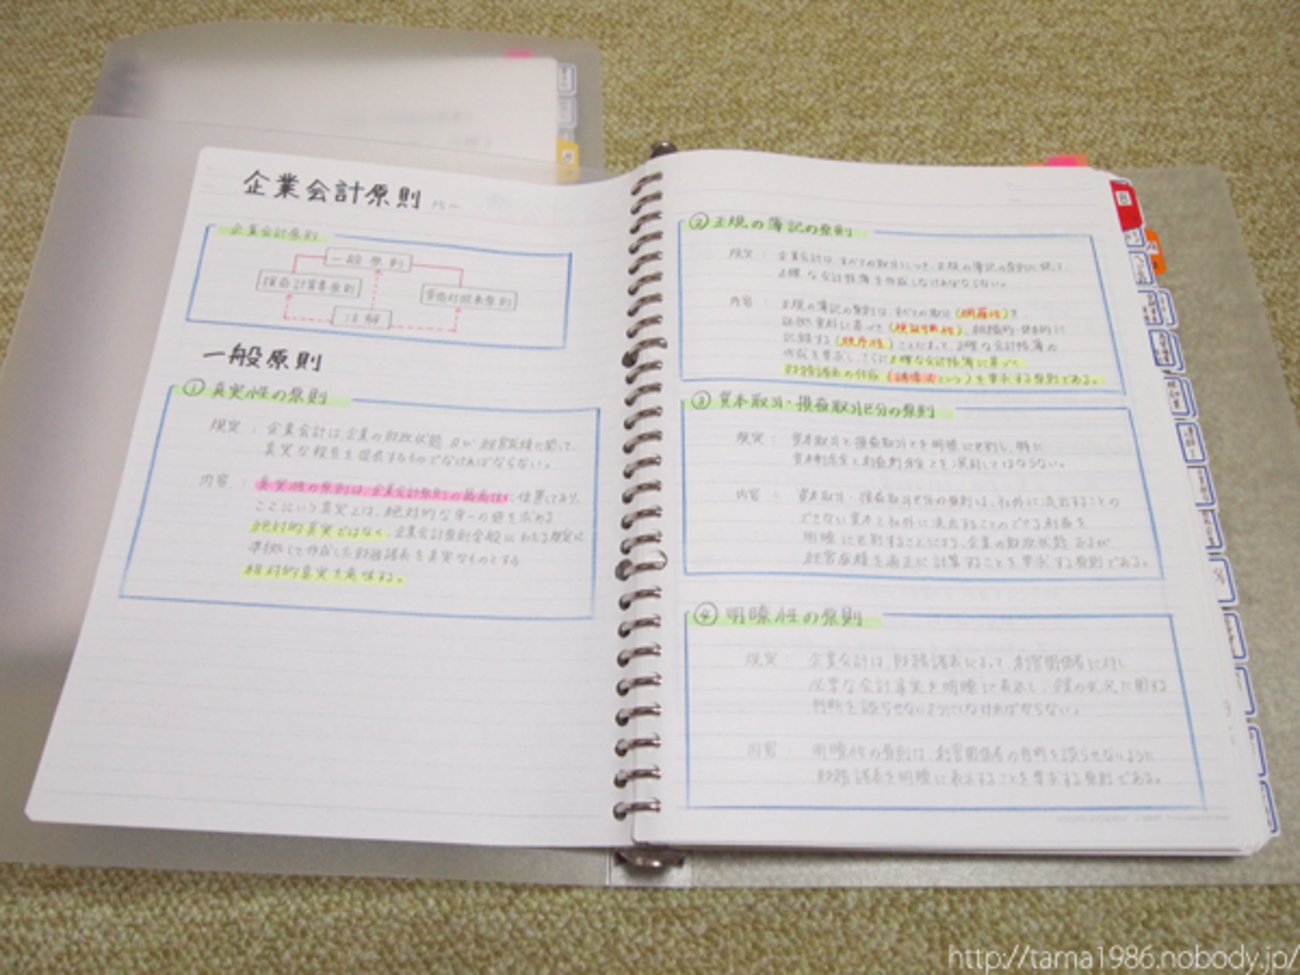 企業会計原則
企業会計原則
一般原則
損益計算書原則
貸借対照表原則
注解
一般原則
① 真実性の原則
規定：企業会計は、企業の財政状態及び経営成績に関して、
真実な報告を提供するものでなければならない。
内容：真実性の原則は、企業会計原則の最高位に位置しており、
ここにいう真実とは、絶対的な唯一の値を求める
絶対的真実ではなく、企業会計原則全般にわたる規定に
準拠して作成した財務諸表を真実なものとする
相対的真実を意味する。
② 正規の簿記の原則
規定：企業会計は、すべての取引につき、正規の簿記の原則に従って、
正確な会計帳簿を作成しなければならない。
内容：正規の簿記の原則は、すべての取引(網羅性)を、
証拠資料に基づき(検証可能性)、組織的・体系的に
記録する(秩序性)ことによって、正確な会計帳簿の
作成を要求し、さらに正確な会計帳簿に基づく
財務諸表の作成(誘導法という)を要求する原則である。
③ 資本取引・損益取引区分の原則
規定：資本取引と損益取引とを明瞭に区別し、特に
資本剰余金と利益剰余金とを混同してはならない。
内容：資本取引・損益取引区分の原則は、社外に流出することの
できない資本と社外に流出することのできる利益を
明瞭に区別することにより、企業の財政状態及び
経営成績を適正に計算することを要求する原則である。
④ 明瞭性の原則
規定：企業会計は、財務諸表によって、利害関係者に対し
必要な会計事実を明瞭に表示し、企業の状況に関する
判断を誤らせないようにしなければならない。
内容：明瞭性の原則は、利害関係者の判断を誤らせないように
財務諸表を明瞭に表示することを要求する原則である。
http://tama1986.nobody.jp/